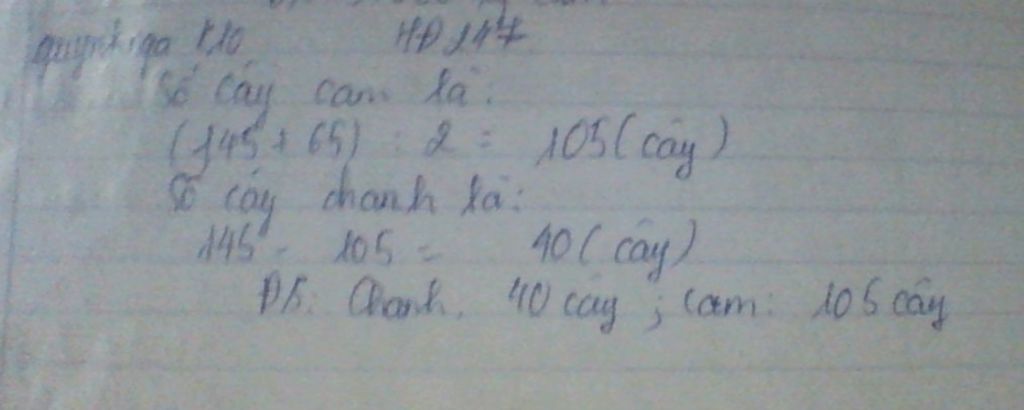 HĐ 147
Số cây cam là:
(145 + 65) : 2 = 105 (cây)
Số cây chanh là:
145 - 105 = 40 (cây)
ĐS: Chanh. 40 cây ; cam: 105 cây